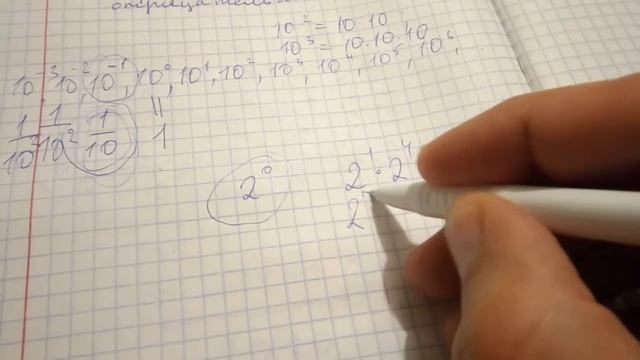 10² = 10·10
10³ = 10·10·10
10⁻³ 10⁻² 10⁻¹, 10⁰, 10¹, 10², 10³, 10⁴, 10⁵, 10⁶, ...
1/10³ 1/10² 1/10 || 1
2⁰ 2¹·2⁴
2